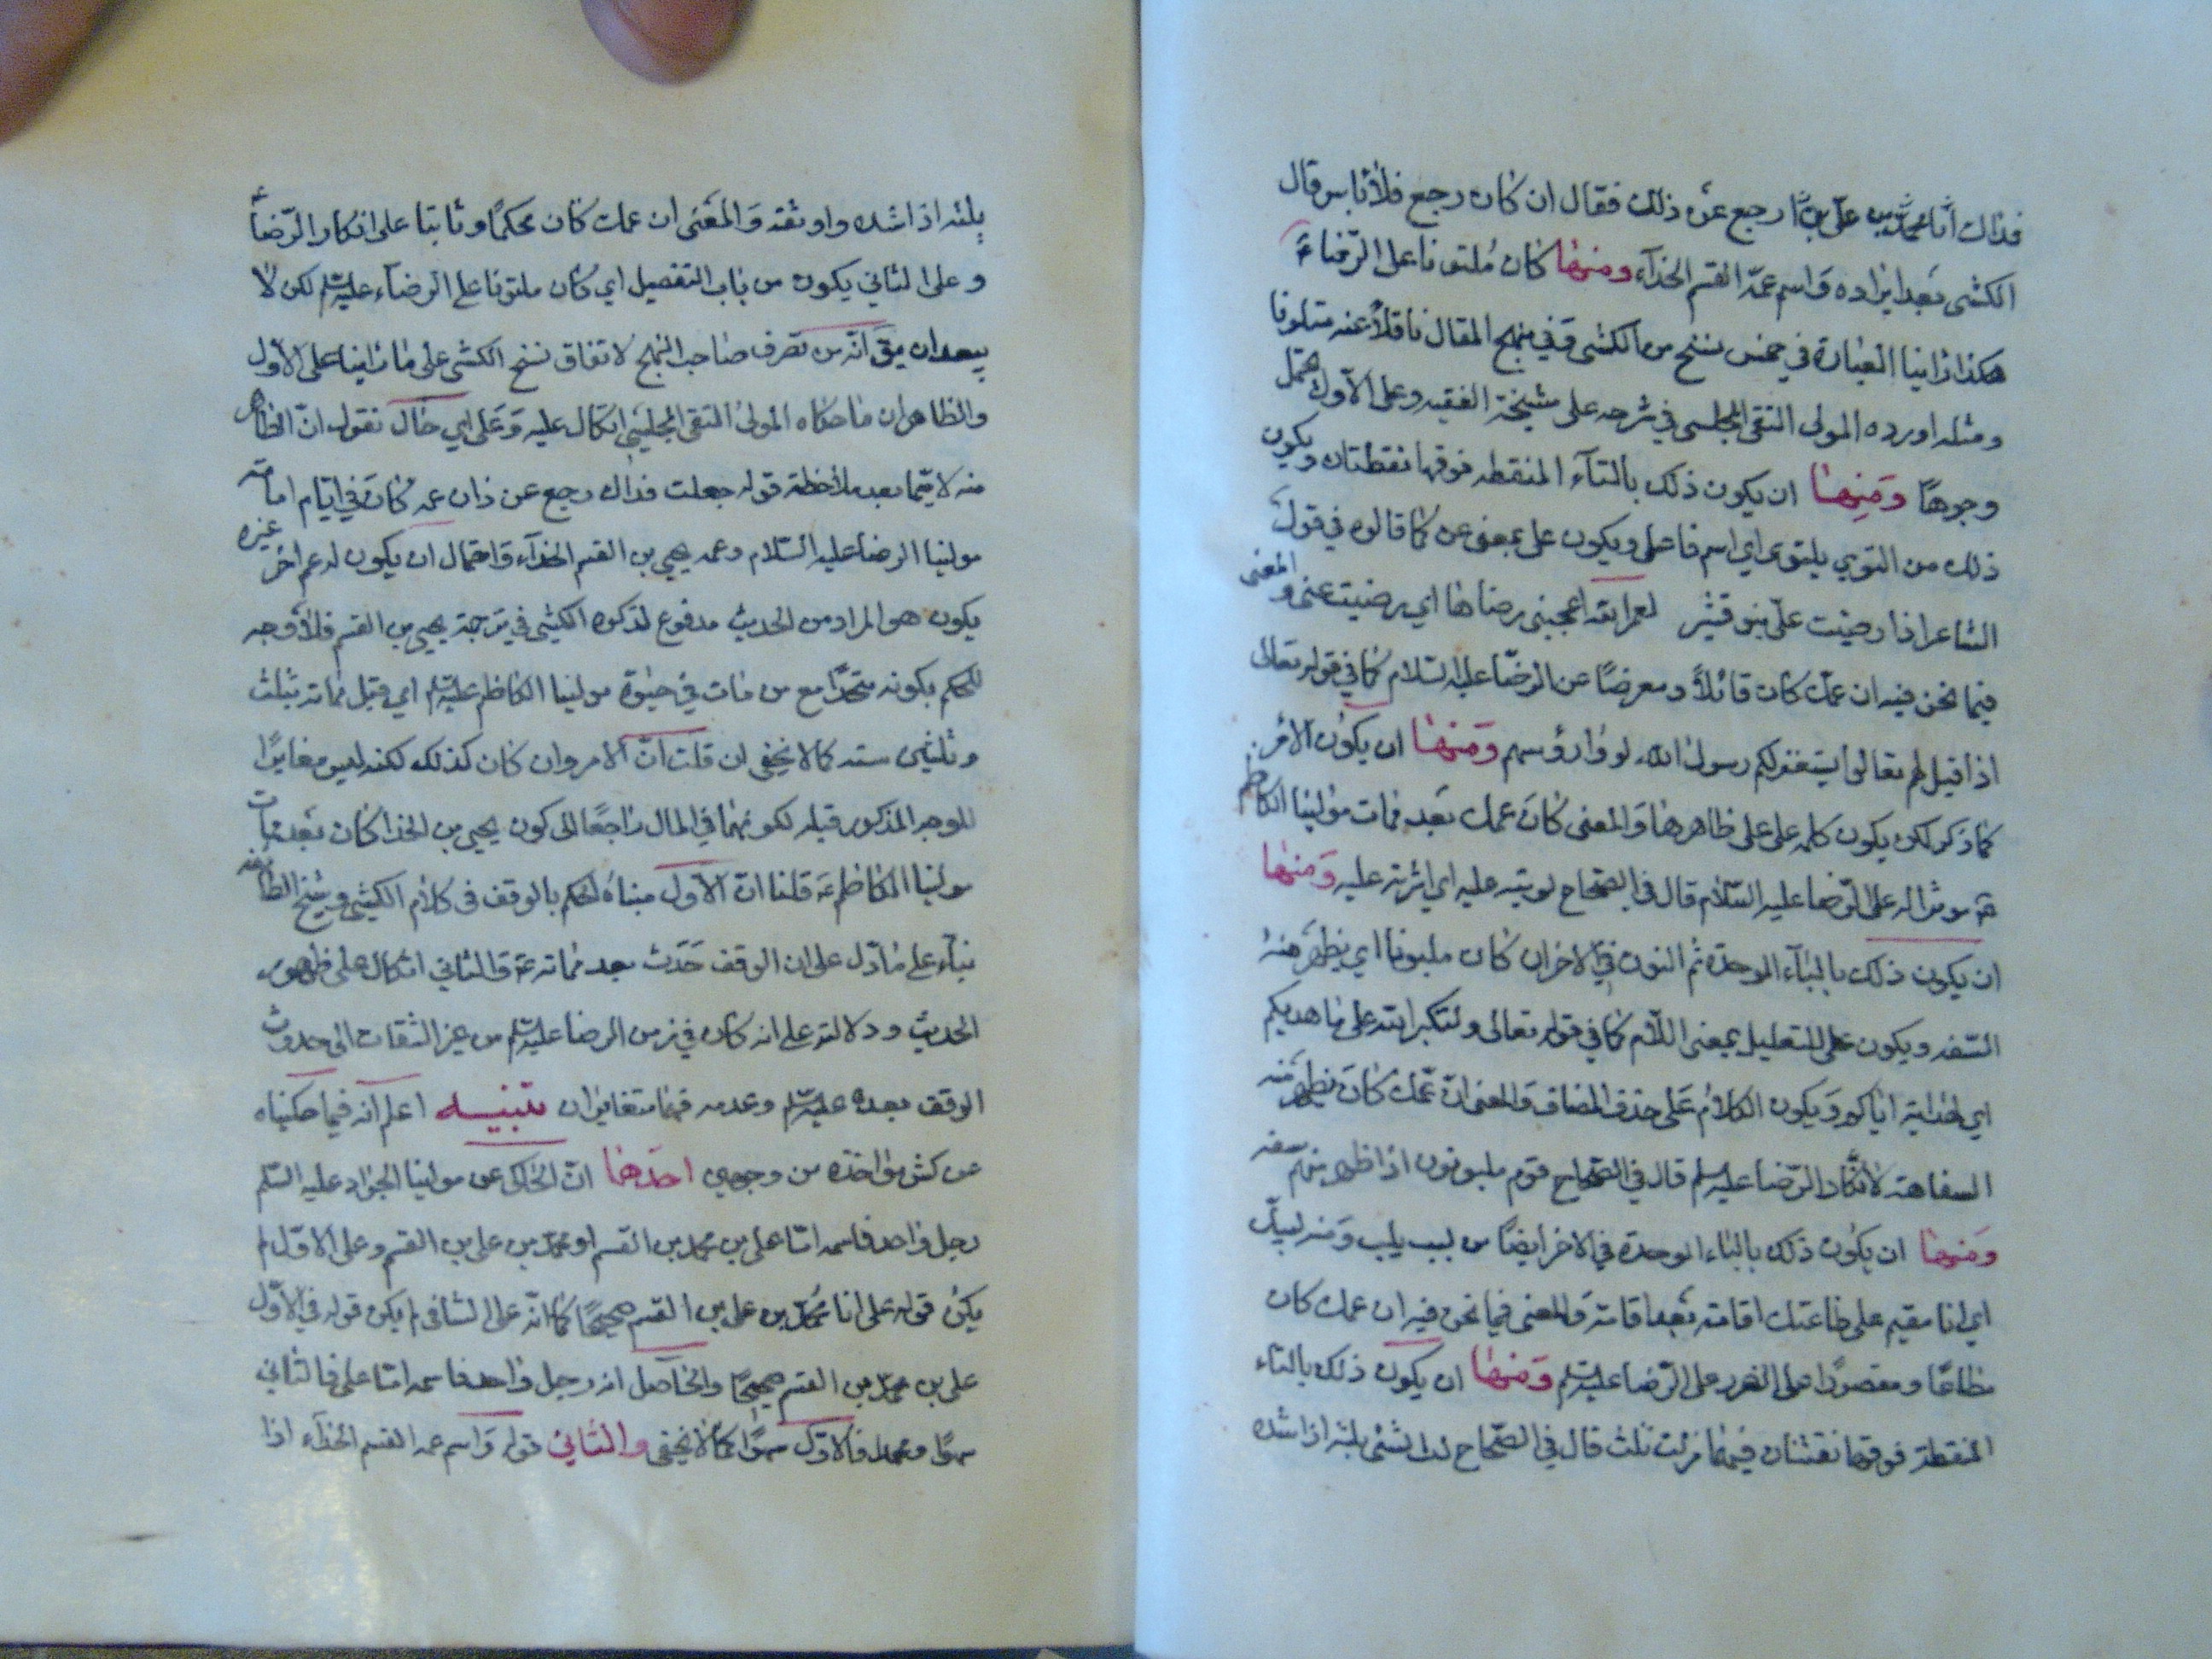 فداك انا محمد بن علي بن رجع عن ذلك فقال ان كان رجع فلا باس قال
الكشي بعد ايراده واسم عمه القسم الحذآء ومنها كان ملتونا على الرضاء
هكذا راينا العبارة في خمس نسخ من الكشي وفي منهج المقال ناقلا عنه
ومثله اورده المولى التقي المجلسي في شرحه على مشيخة الفقيه وعلى الاول يحتمل
وجوها ومنها ان يكون ذلك بالتآء المنقطه فوقها نقطتان ويكون
ذلك من التوي يلتوى اي اسم فاعل ويكون على بمعنى عن كما قالوه في قول
الشاعر اذا رضيت علي بنو قشير لعمر الله اعجبني رضاها اي رضيت عني والمعنى
فيما نحن فيه ان عمك كان قائلا ومعرضا عن الرضا عليه السلام كما في قوله تعالى
اذا قيل لهم تعالوا يستغفر لكم رسول الله لووا رؤسهم ومنها ان يكون الامر
كما ذكر لكن يكون كلمه على على ظاهرها والمعنى كان عمك بعد ممات مولينا الكاظم
ع موثرا له على الرضا عليه السلام قال في الصحاح لويته عليه اي اثرته عليه ومنها
ان يكون ذلك بالبآء الموحدة ثم النون في الاخر ان كان ملبونا اي يظهر منه
السفه ويكون على للتعليل بمعنى اللام كما في قوله تعالى ولتكبر الله على ما هديكم
اي لهدايته اياكم ويكون الكلام على حذف المضاف والمعنى ان عمك كان يظهر منه
السفاهة لانكار الرضا عليه السلم قال في الصحاح قوم ملبونون اذا ظهر منهم سفه
ومنها ان يكون ذلك بالباء الموحدة في الاخر ايضا من لبب يلبب ومنه لبيك
اي انا مقيم على طاعتك اقامة بعد اقامة والمعنى فيما نحن فيه ان عمك كان
مطاعا ومقصورا على الضرر على الرضا عليه السلم ومنها ان يكون ذلك بالتاء
المنقطة فوقها نقطتان فيهما مرات ثلث قال في الصحاح لت الشئ يلته اذا شده
يلته اذا شده واوثقه والمعنى ان عمك كان محكما وثابتا على انكار الرضا
وعلى الثاني يكون من باب التفعيل اي كان ملتونا على الرضآء عليه السلم لكن لا
يبعد ان يق انه من تصرف صاحب النهج لاتفاق نسخ الكشي على ما راينا على الاول
والظاهر ان ما حكاه المولى التقي المجلسي اتكال عليه وعلى اي حال نقول ان الظاهر
منه لاسيما بعد ملاحظة قوله جعلت فداك رجع عن ذان عمه كان في ايام امامة
مولينا الرضا عليه السلام وعمه يحيى بن القسم الحذآء واحتمال ان يكون له عم اخر غيره
يكون هو المراد من الحديث مدفوع لذكره الكشي في ترجمة يحيى بن القسم فلا وجه
للحكم بكونه متحدا مع من مات في حيوة مولينا الكاظم عليه السلم اي قبل مماته بثلث
وثلثين سنه كما لا يخفى ان قلت ان الامر وان كان كذلك لكنه ليس مغايرا
للوجه المذكور قبله لكونهما في المال راجعا الى كون يحيى بن الحذا كان بعد ممات
مولينا الكاظم ع قلنا ان الاول مبناه الحكم بالوقف في كلام الكشي وشيخ الطائفه
بناء على ما دل على ان الوقف حدث بعد مماته ع والثاني اتكال على ظهور
الحديث ودلالته على انه كان في زمن الرضا عليه السلم من غير الثقات الى حدوث
الوقف بعده عليه السلم وعدمه فهما متغايران تنبيه اعلم انه فيما حكيناه
عن كش مؤاخذه من وجهين احدهما ان الحاكي عن مولينا الجواد عليه السلم
رجل واحد فاسمه اما علي بن محمد بن القسم او محمد بن علي بن القسم وعلى الاول لم
يكن قوله على انا محمد بن علي بن القسم صحيحا كما انه على الثاني لم يكن قوله في الاول
علي بن محمد بن القسم صحيحا والحاصل انه رجل واحد فاسمه اما علي فالثاني
سهو ومحمد فالاول سهو كما لا يخفى والثاني قوله واسم عمه القسم الحذآء اذا